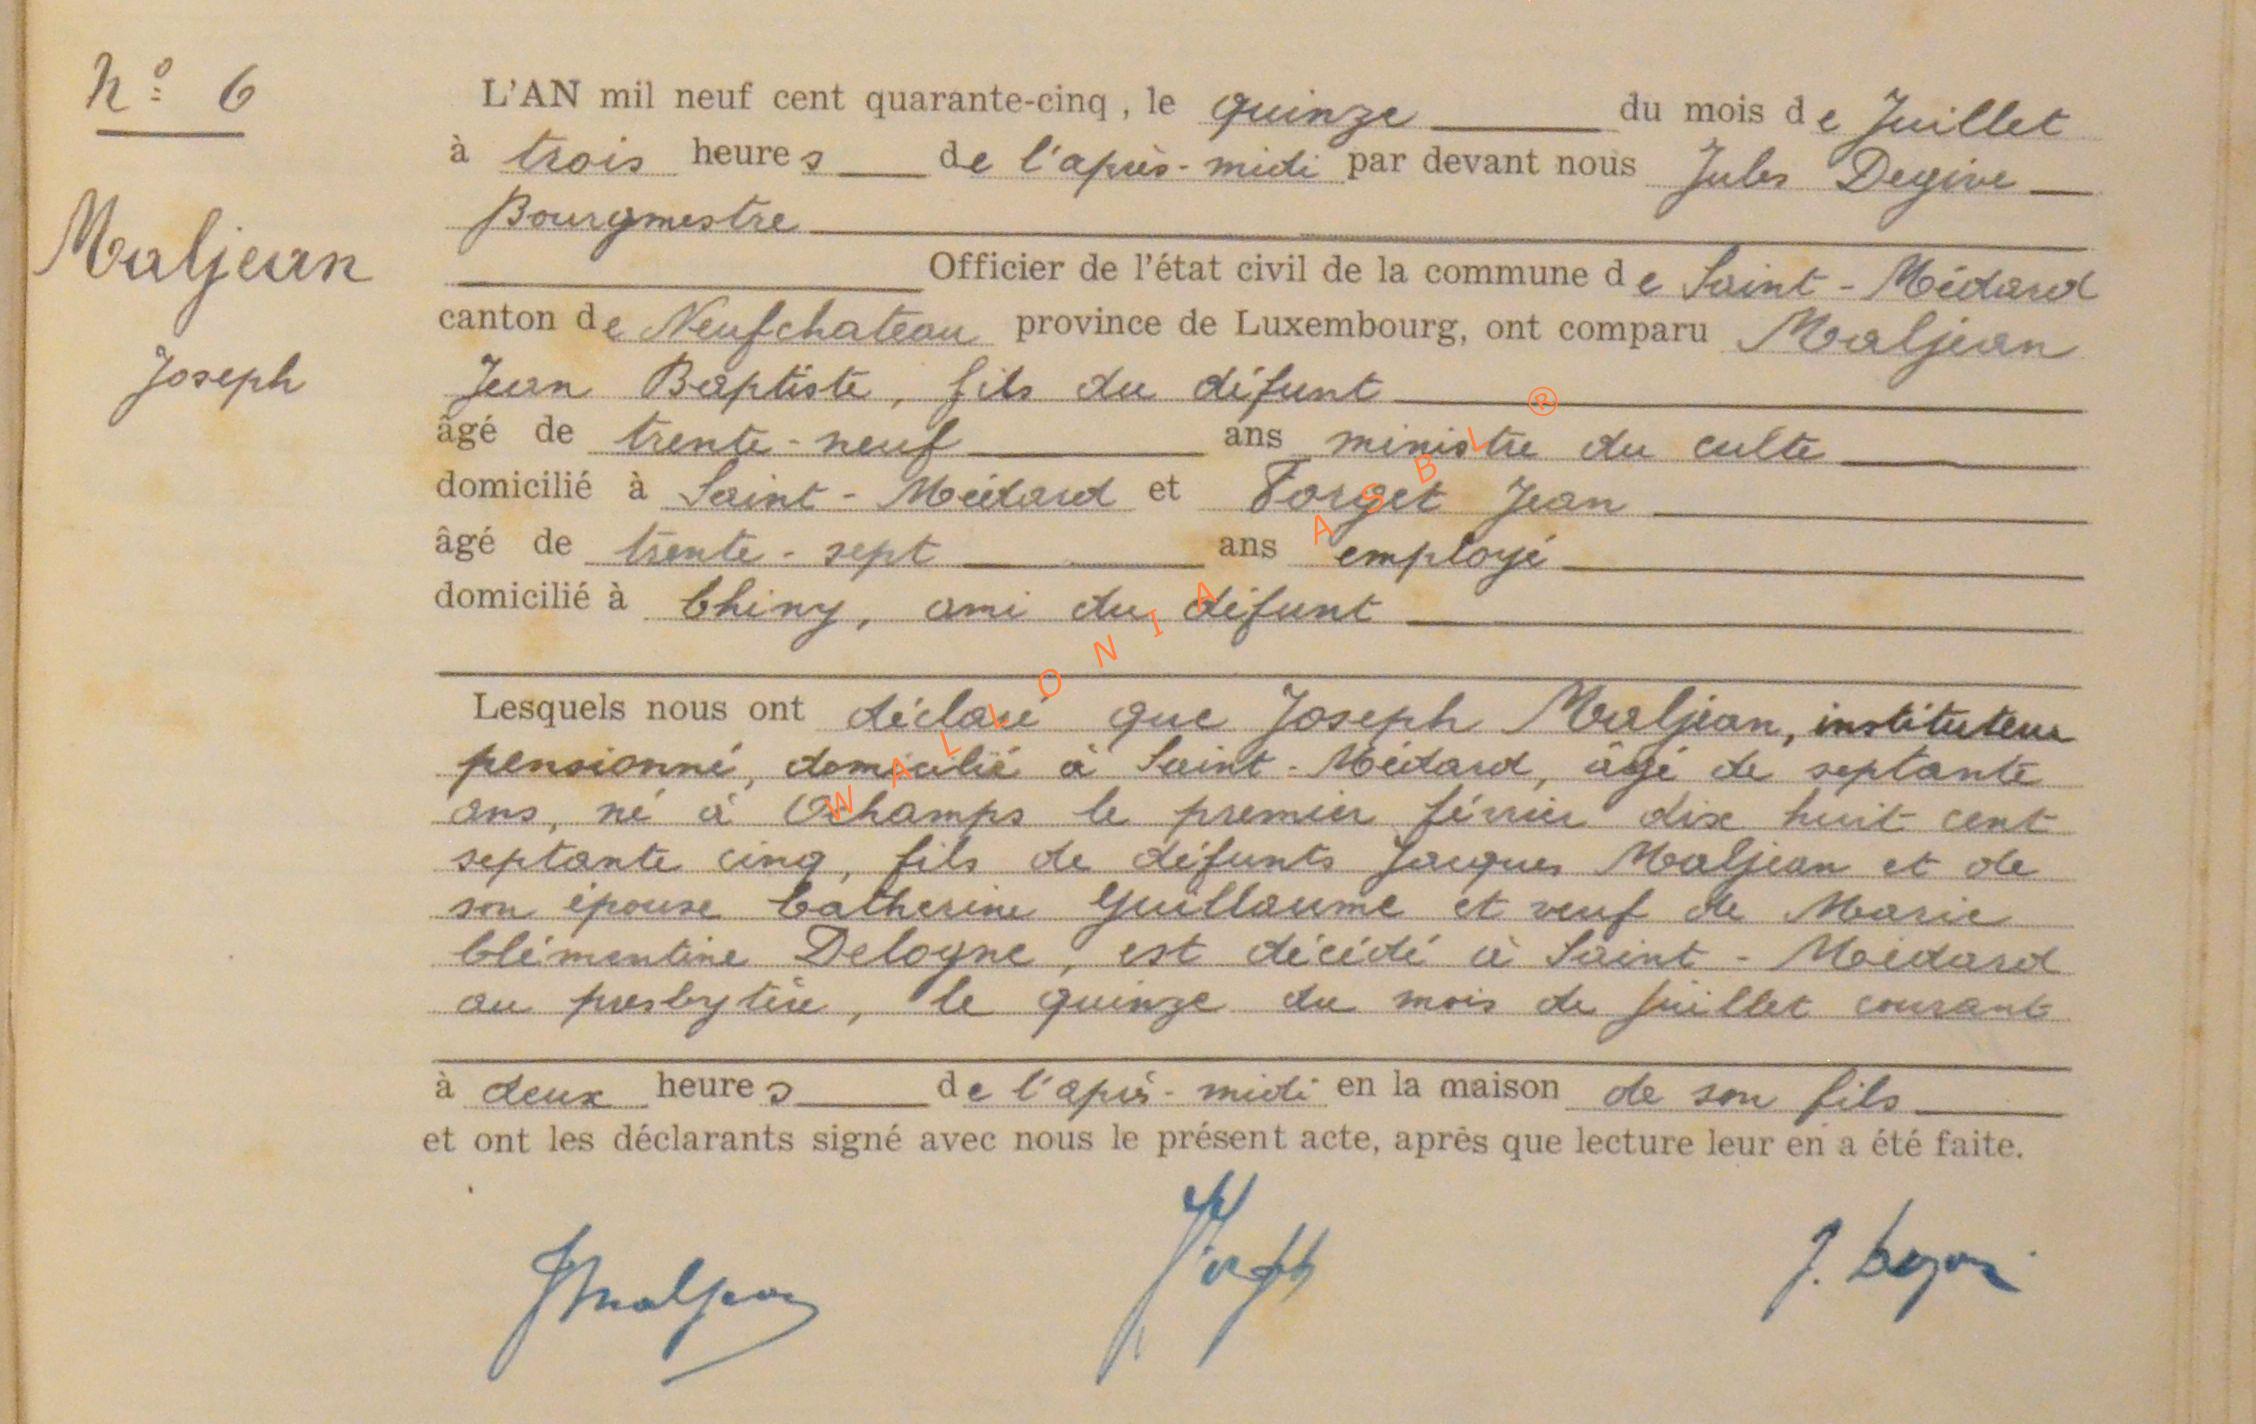 N° 6
Maljean
Joseph
L'AN mil neuf cent quarante-cinq, le quinze du mois de Juillet
à trois heures de l'après-midi par devant nous Jules Degive
Bourgmestre
Officier de l'état civil de la commune de Saint-Médard
canton de Neufchateau province de Luxembourg, ont comparu Maljean
Jean Baptiste, fils du défunt
âgé de trente-neuf ans ministre du culte
domicilié à Saint-Médard et Forget Jean
âgé de trente-sept ans employé
domicilié à Chiny, ami du défunt
Lesquels nous ont déclaré que Joseph Maljean, instituteur
pensionné, domicilié à Saint-Médard, âgé de septante
ans, né à Ochamps le premier février dix huit cent
septante cinq, fils de défunts Jacques Maljean et de
son épouse Catherine Guillaume et veuf de Marie
Clémentine Delogne, est décédé à Saint-Médard
au presbytère, le quinze du mois de juillet courant
à deux heures de l'après-midi en la maison de son fils
et ont les déclarants signé avec nous le présent acte, après que lecture leur en a été faite.
JMaljean
J. Degive
WALLONIA ASBL ®